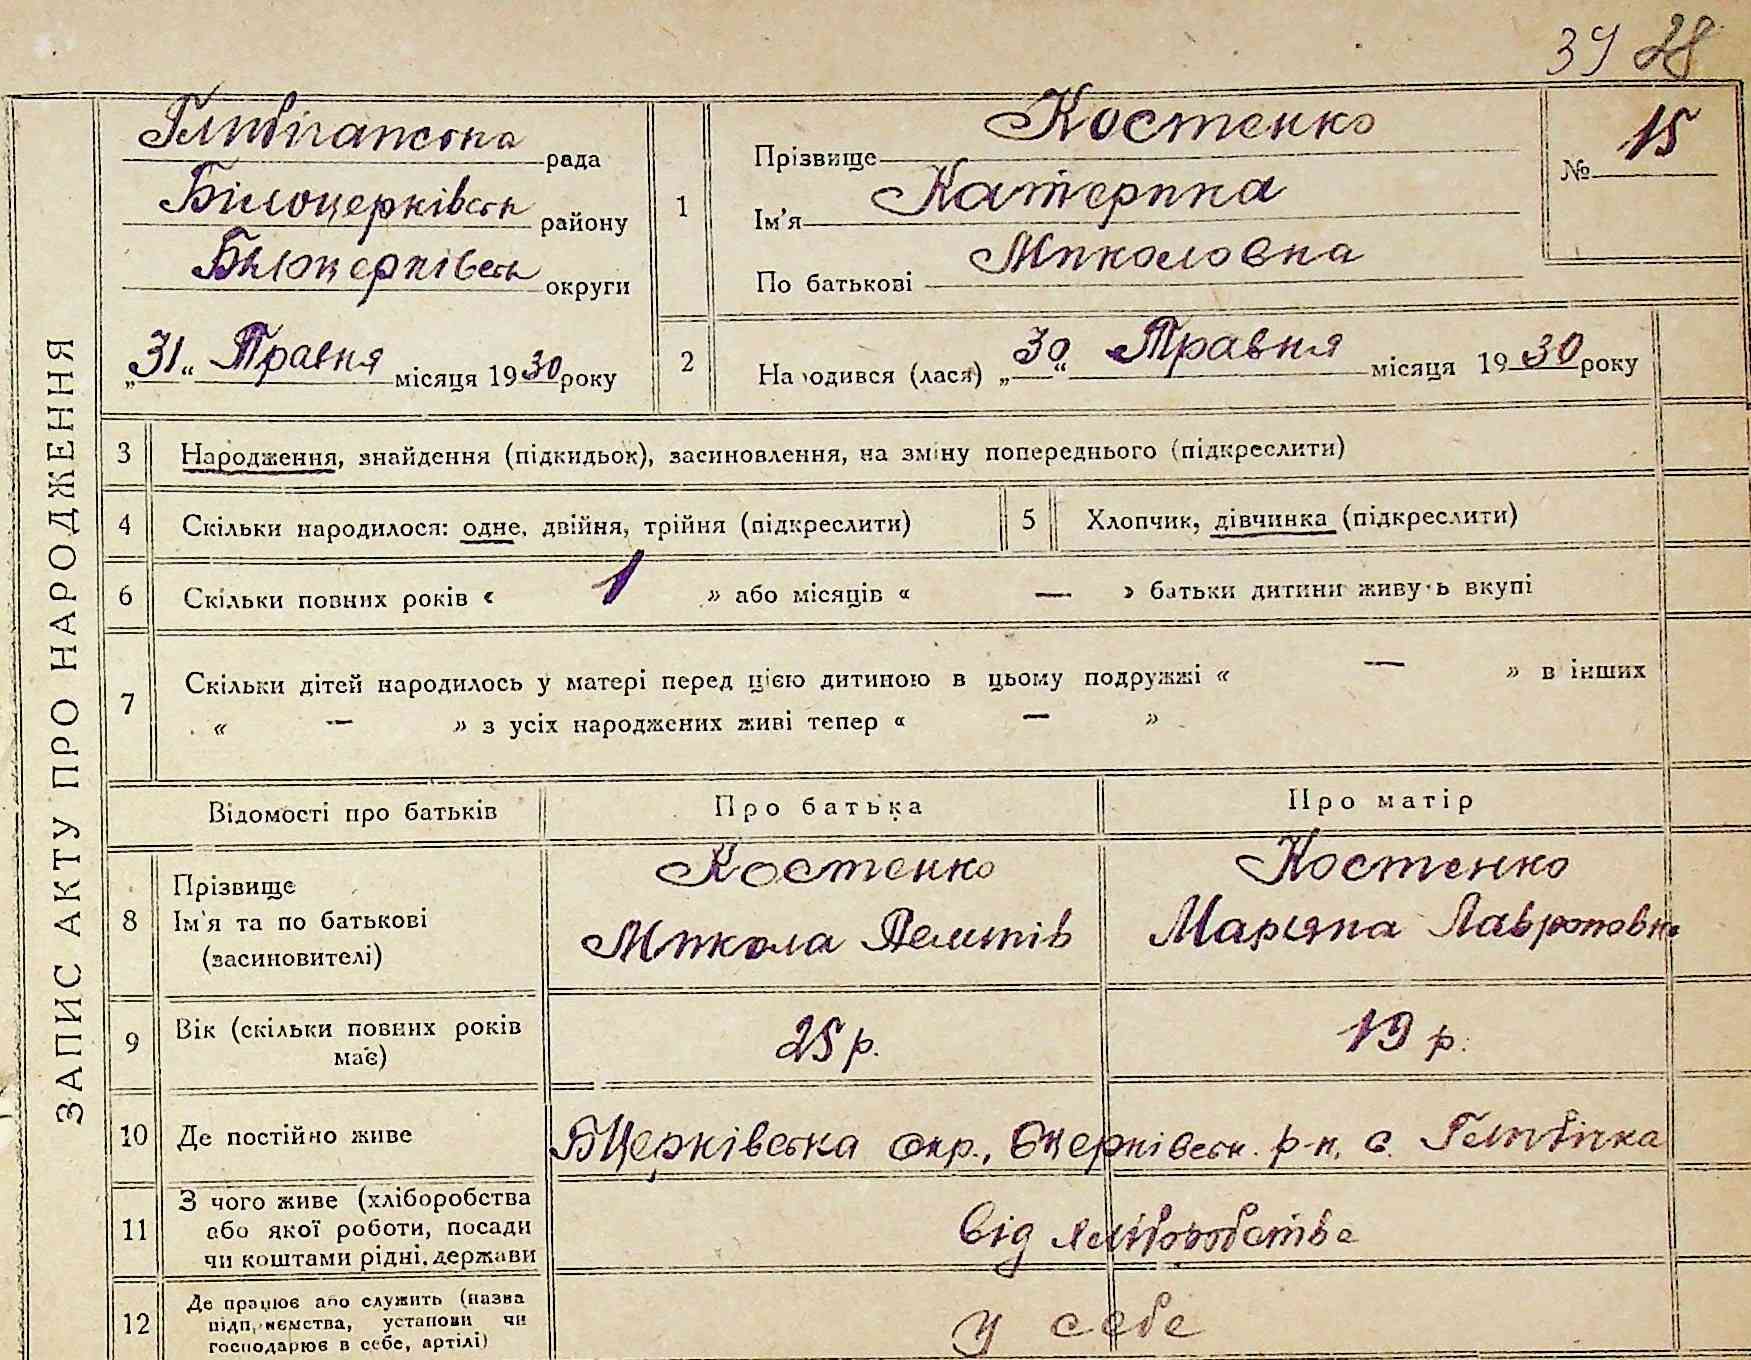 39 28
Глибічанська рада
Білоцерківськ району
Білоцерківськ округи
„31“ Травня місяця 1930 року
1
Прізвище Костенко
Ім'я Катерина
По батькові Миколовна
№ 15
2
Народився (лася) „30“ Травня місяця 1930 року
ЗАПИС АКТУ ПРО НАРОДЖЕННЯ
3 Народження, знайдення (підкидьок), засиновлення, на зміну попереднього (підкреслити)
4 Скільки народилося: одне, двійня, трійня (підкреслити)
5 Хлопчик, дівчинка (підкреслити)
6 Скільки повних років « 1 » або місяців « — » батьки дитини живуть вкупі
7 Скільки дітей народилось у матері перед цією дитиною в цьому подружжі « — » в інших
« — » з усіх народжених живі тепер « — »
Відомості про батьків Про батька Про матір
8 Прізвище
Ім'я та по батькові
(засиновителі)
Костенко
Микола
Костенко
Мар'яна Лавроновна
9 Вік (скільки повних років
має)
25 р. 19 р.
10 Де постійно живе БЦерківська окр., Бцерківськ. р-н, с. Глибічка
11 З чого живе (хліборобства
або якої роботи, посади
чи коштами рідні, держави
від хліборобства
12 Де працює або служить (назва
підприємства, установи чи
господарює в себе, артілі)
у себе